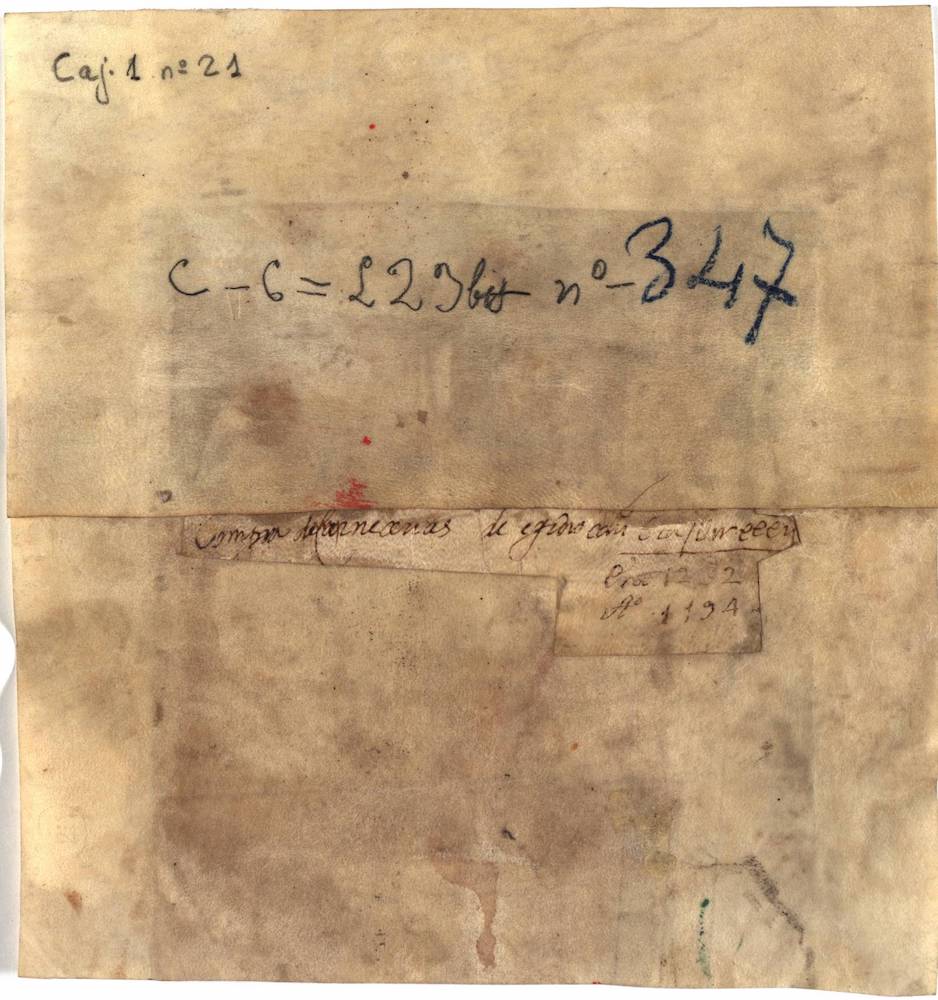 Caj. 1 nº 21
C - 6 = L 23 bis nº - 347
Compra de de
Era 12 2
Aº. 1194